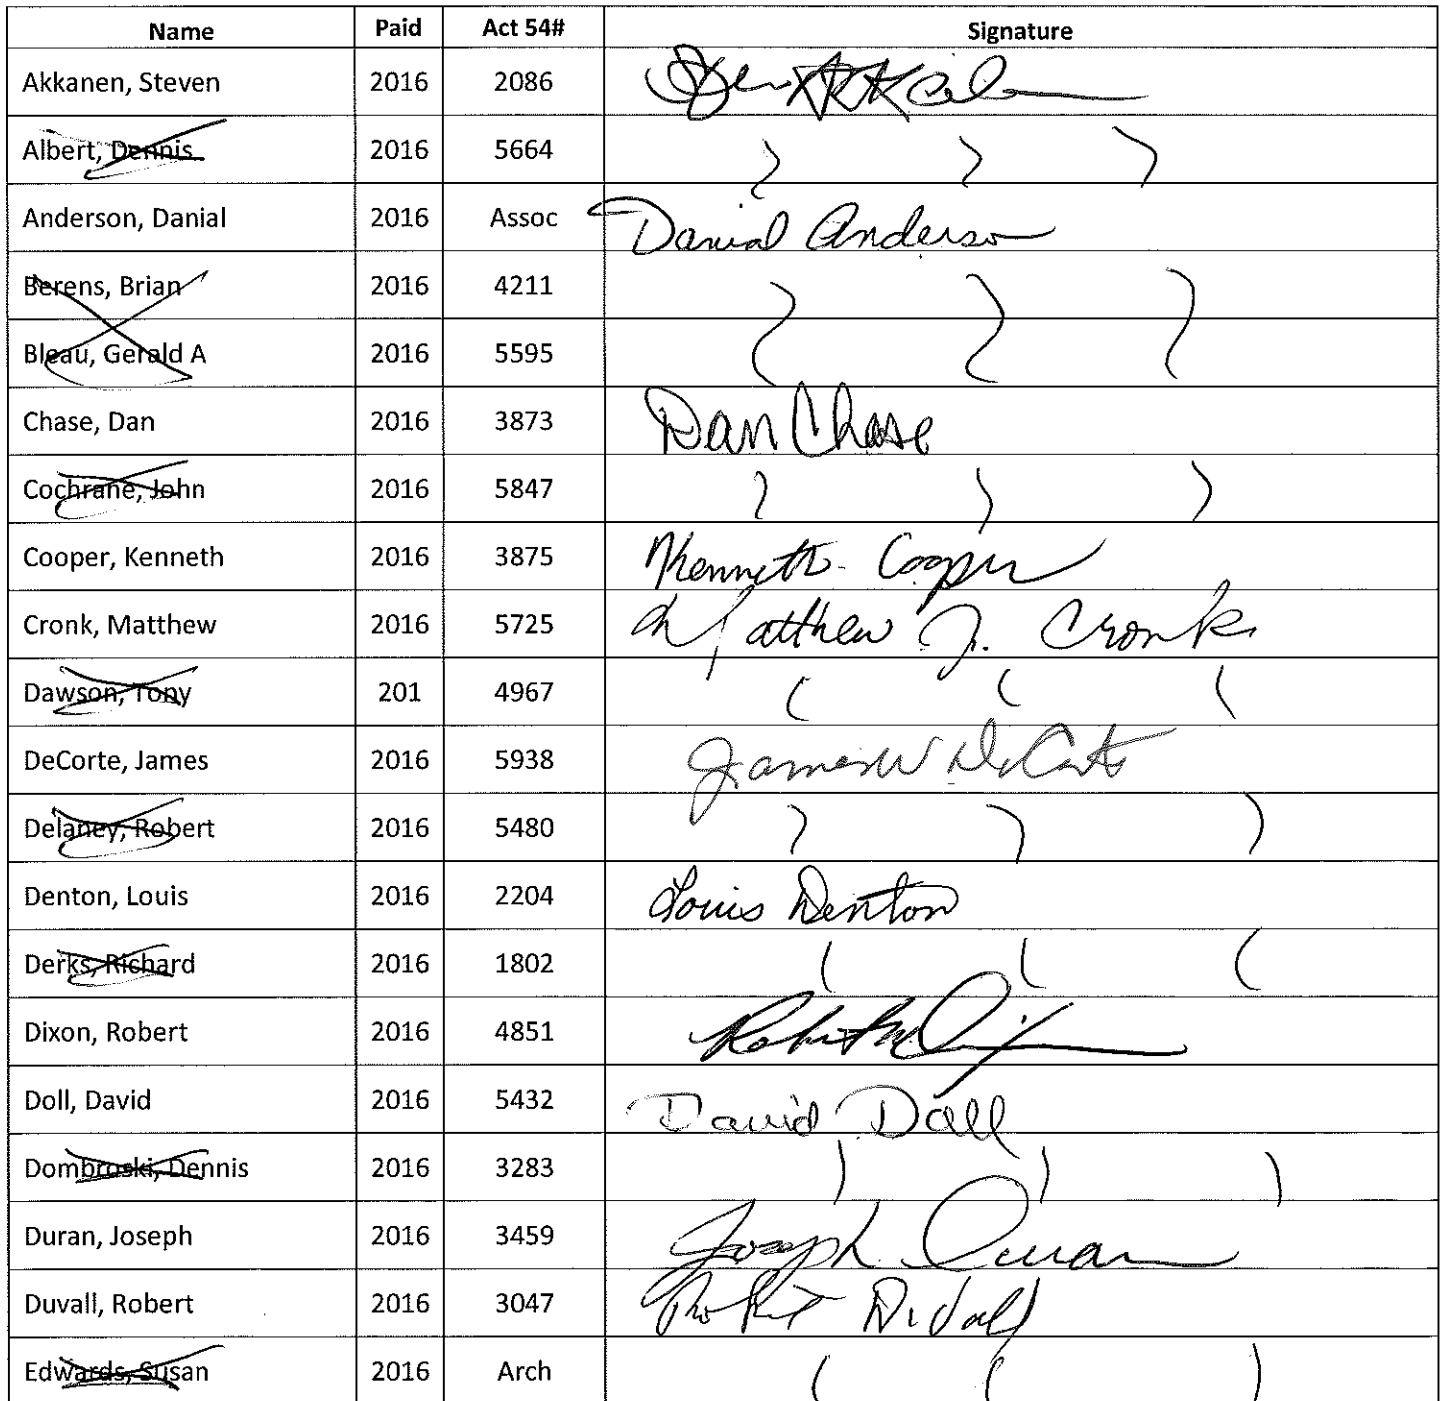 Name Paid Act 54# Signature
Akkanen, Steven 2016 2086
Albert, Dennis 2016 5664
Anderson, Danial 2016 Assoc Danial Anderson
Berens, Brian 2016 4211
Bleau, Gerald A 2016 5595
Chase, Dan 2016 3873 Dan Chase
Cochrane, John 2016 5847
Cooper, Kenneth 2016 3875 Kenneth Cooper
Cronk, Matthew 2016 5725 Matthew J. Cronk
Dawson, Tony 201 4967
DeCorte, James 2016 5938 James W DeCorte
Delaney, Robert 2016 5480
Denton, Louis 2016 2204 Louis Denton
Derks, Richard 2016 1802
Dixon, Robert 2016 4851 Robert M Dixon
Doll, David 2016 5432 David Doll
Dombroski, Dennis 2016 3283
Duran, Joseph 2016 3459 Joseph Duran
Duvall, Robert 2016 3047 Robert Duvall
Edwards, Susan 2016 Arch